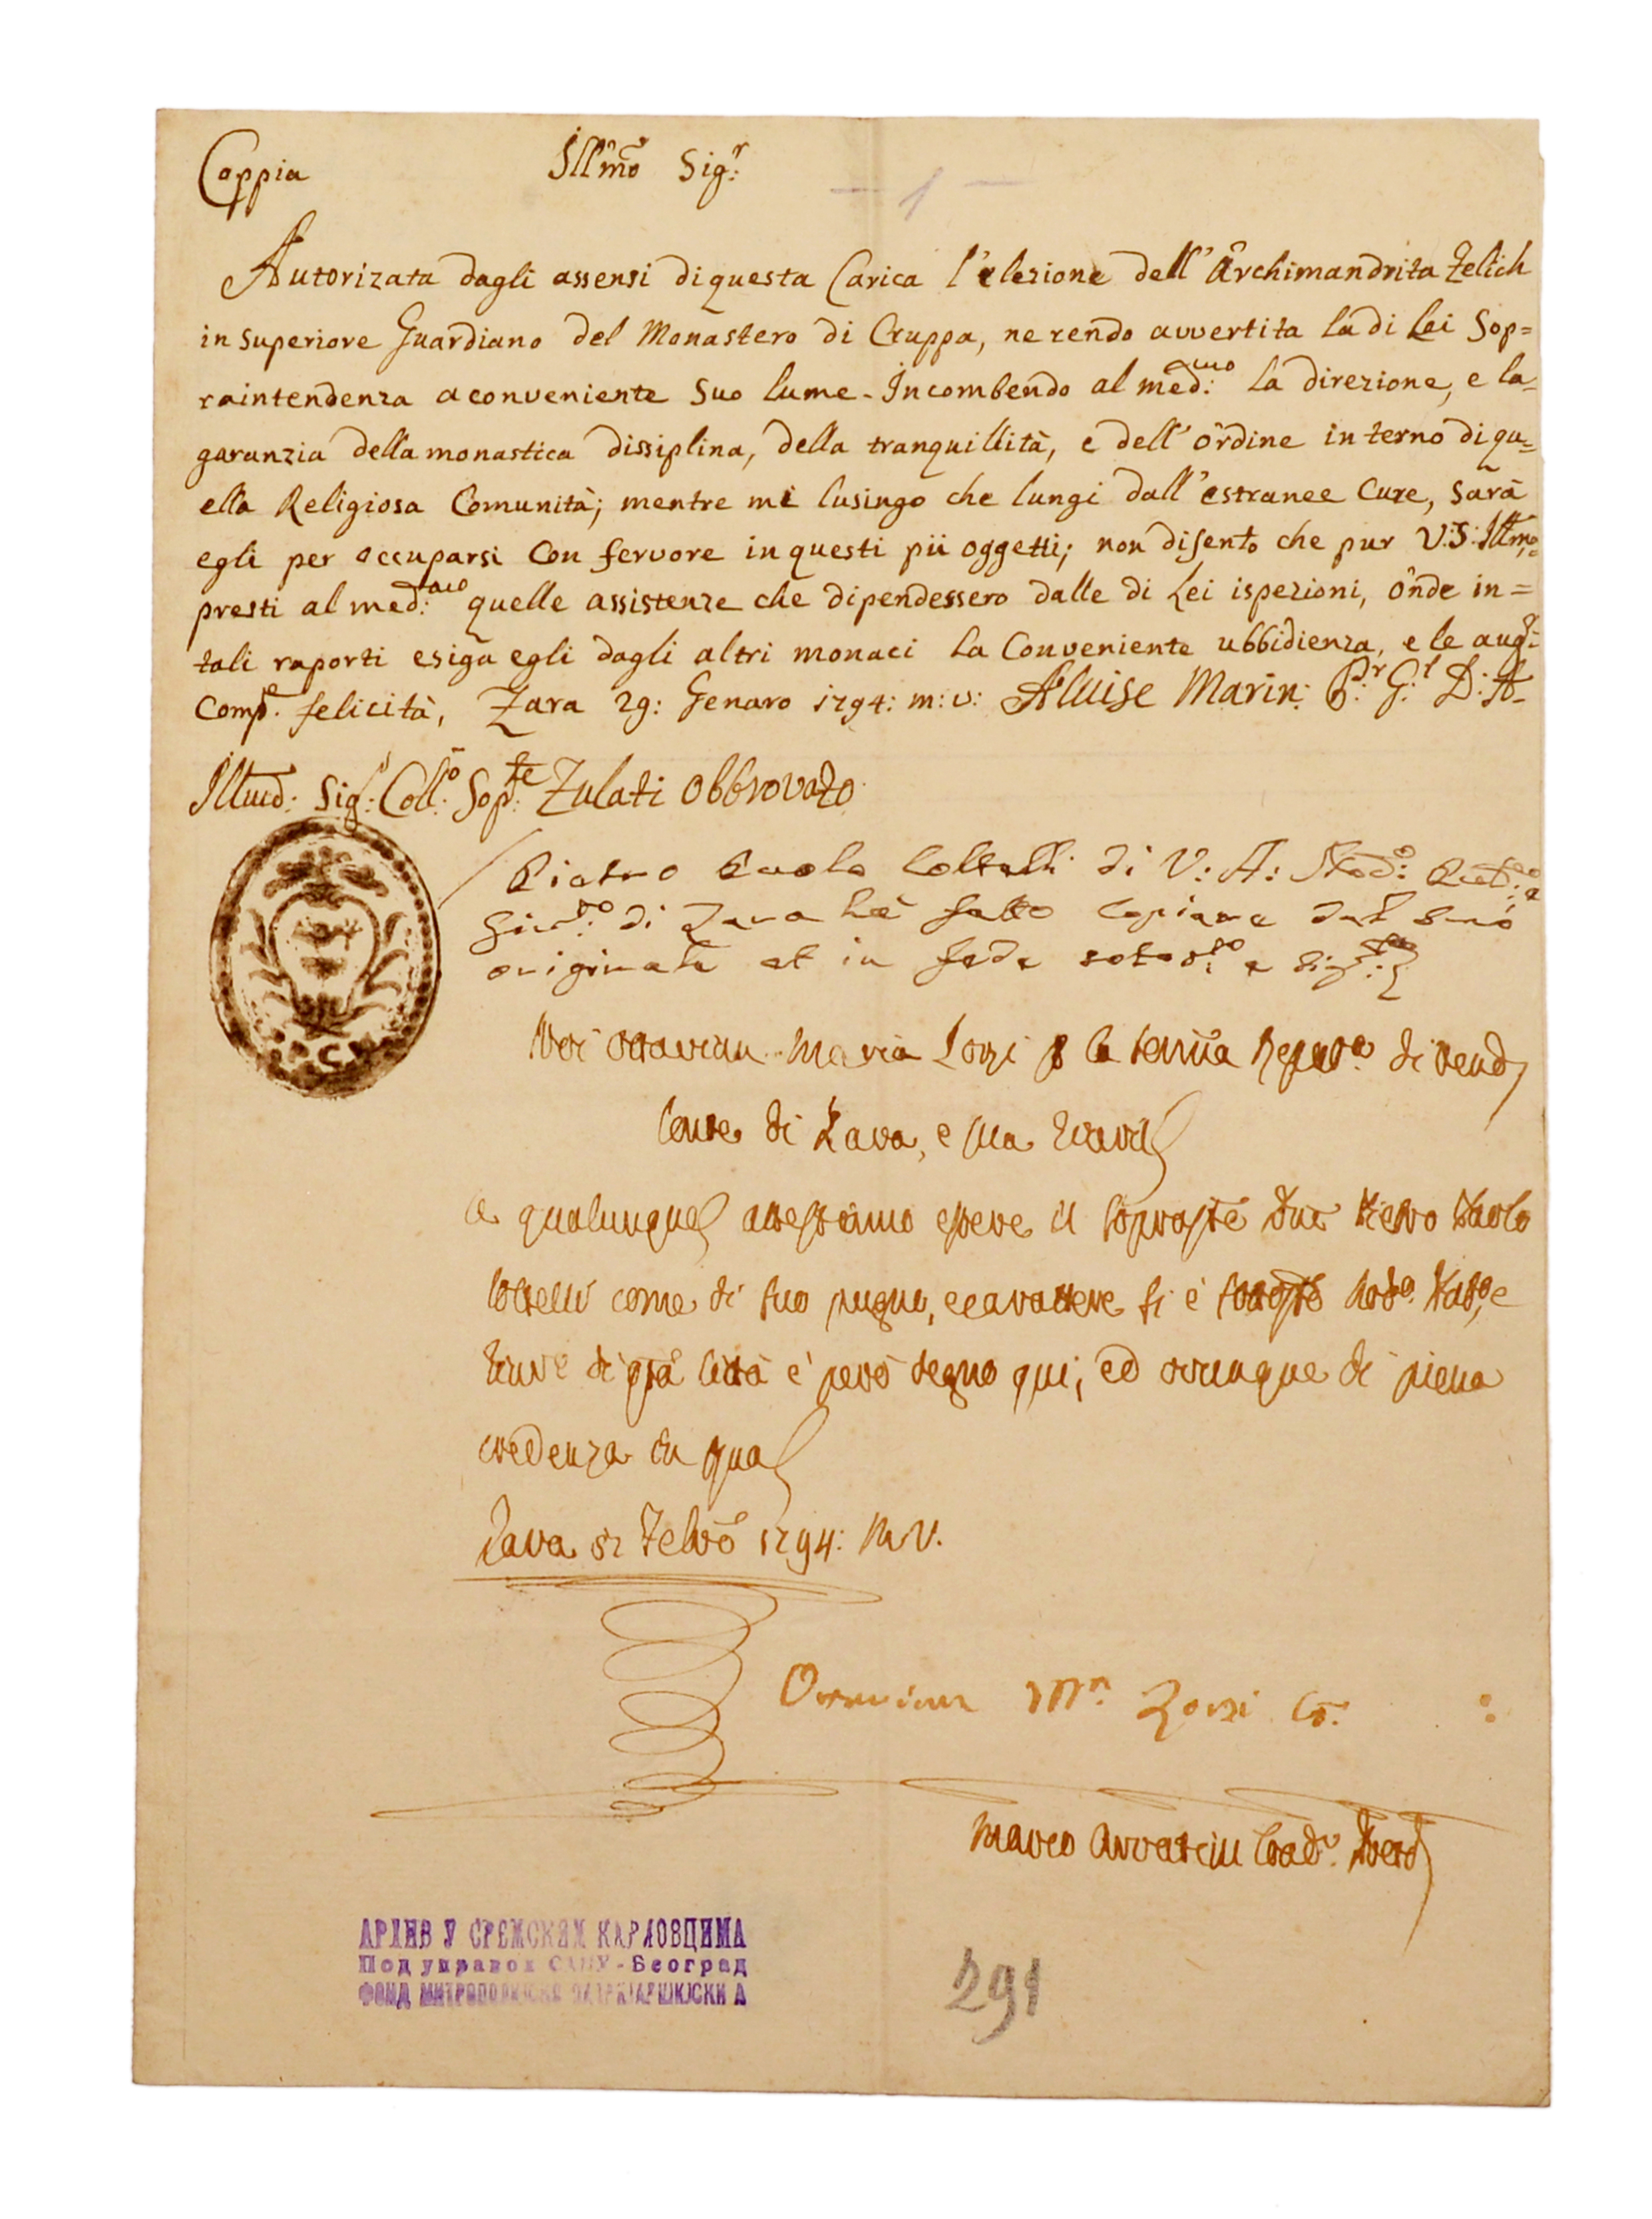 Coppia Ill'mo Sig.r
- 1 -
Autorizata dagli assensi di questa Carica l'elezione dell'Archimandrita Zelich
in Superiore Guardiano del Monastero di Cruppa, ne rendo avvertita la di Lei Sop=
raintendenza a conveniente Suo lume. Incombendo al med:mo la direzione, e la
garanzia della monastica dissiplina, della tranquillità, e dell'ordine interno di qu=
ella Religiosa Comunità; mentre mi lusingo che lungi dall'estranee Cure, sarà
egli per occuparsi Con fervore in questi pii oggetti; non disento che pur V:S: Ill'ma
presti al med:mo quelle assistenze che dipendessero dalle di Lei ispezioni, onde in=
tali raporti esiga egli dagli altri monaci la Conveniente ubbidienza, e le aug:
Comp. felicità, Zara 29: Genaro 1794: m: v: Aluise Marin: P:r G:l D: A-
Sig: Coll:o Sop:te Zulati Obbrovazo
Pietro Paolo Coltelli di V: A: Nod:o
di Zara hà fatto copiare dal suo
originale et in fede sotos:to e
P C
Noi Ottavian Maria Zorzi p la Ser'ma Repub:a di Vene
Conte di Zara, e sua
A qualunque attestiamo essere il Sopras'to Pietro Paolo
Coltelli come di suo pugno, e carattere si è Nod:o e
di q'ta Città è però degno qui, ed ovunque di piena
credenza In qua
Zara Febro 1794: M.V.
Ottavian M.a Zorzi Co:
Marco
АРХИВ У СРЕМСКИМ КАРЛОВЦИМА
Под управом САНУ - Београд
ФОНД МИТРОПОЛИЈСКО ПАТРИЈАРШИЈСКИ А
291